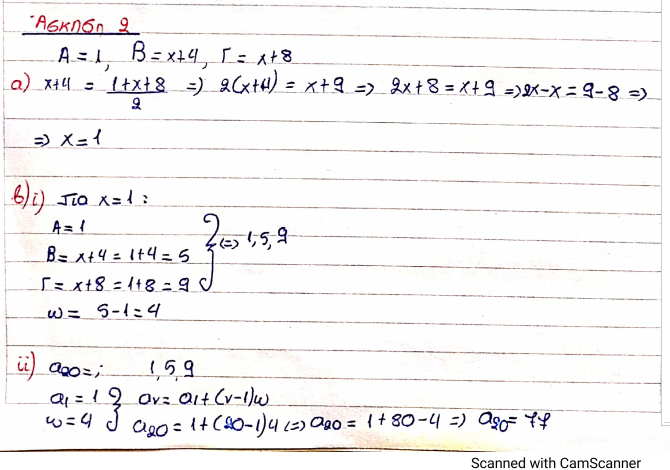 Άσκηση 2
A = 1, B = x+4, Γ = x+8
a) x+4 = (1+x+8)/2 => 2(x+4) = x+9 => 2x+8 = x+9 => 2x-x = 9-8 =>
=> x = 1
β) i) Για x=1 :
A = 1
B = x+4 = 1+4 = 5
<=> 1, 5, 9
Γ = x+8 = 1+8 = 9
ω = 5-1 = 4
ii) a20 = ; 1, 5, 9
a1 = 1 } aν = a1+(ν-1)ω
ω = 4 } a20 = 1+(20-1)4 <=> a20 = 1+80-4 => a20 = 77
Scanned with CamScanner